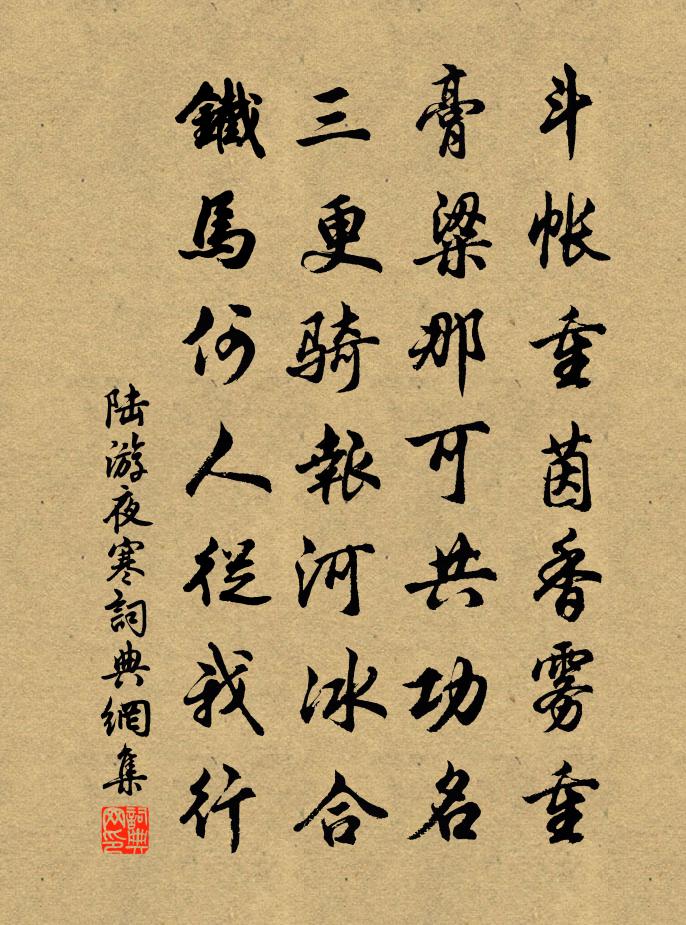 斗帳重茵香雾重
膏粱那可共功名
三更骑報河冰合
鐵馬何人從我行
陆游夜寒詞典網集
詞典网印